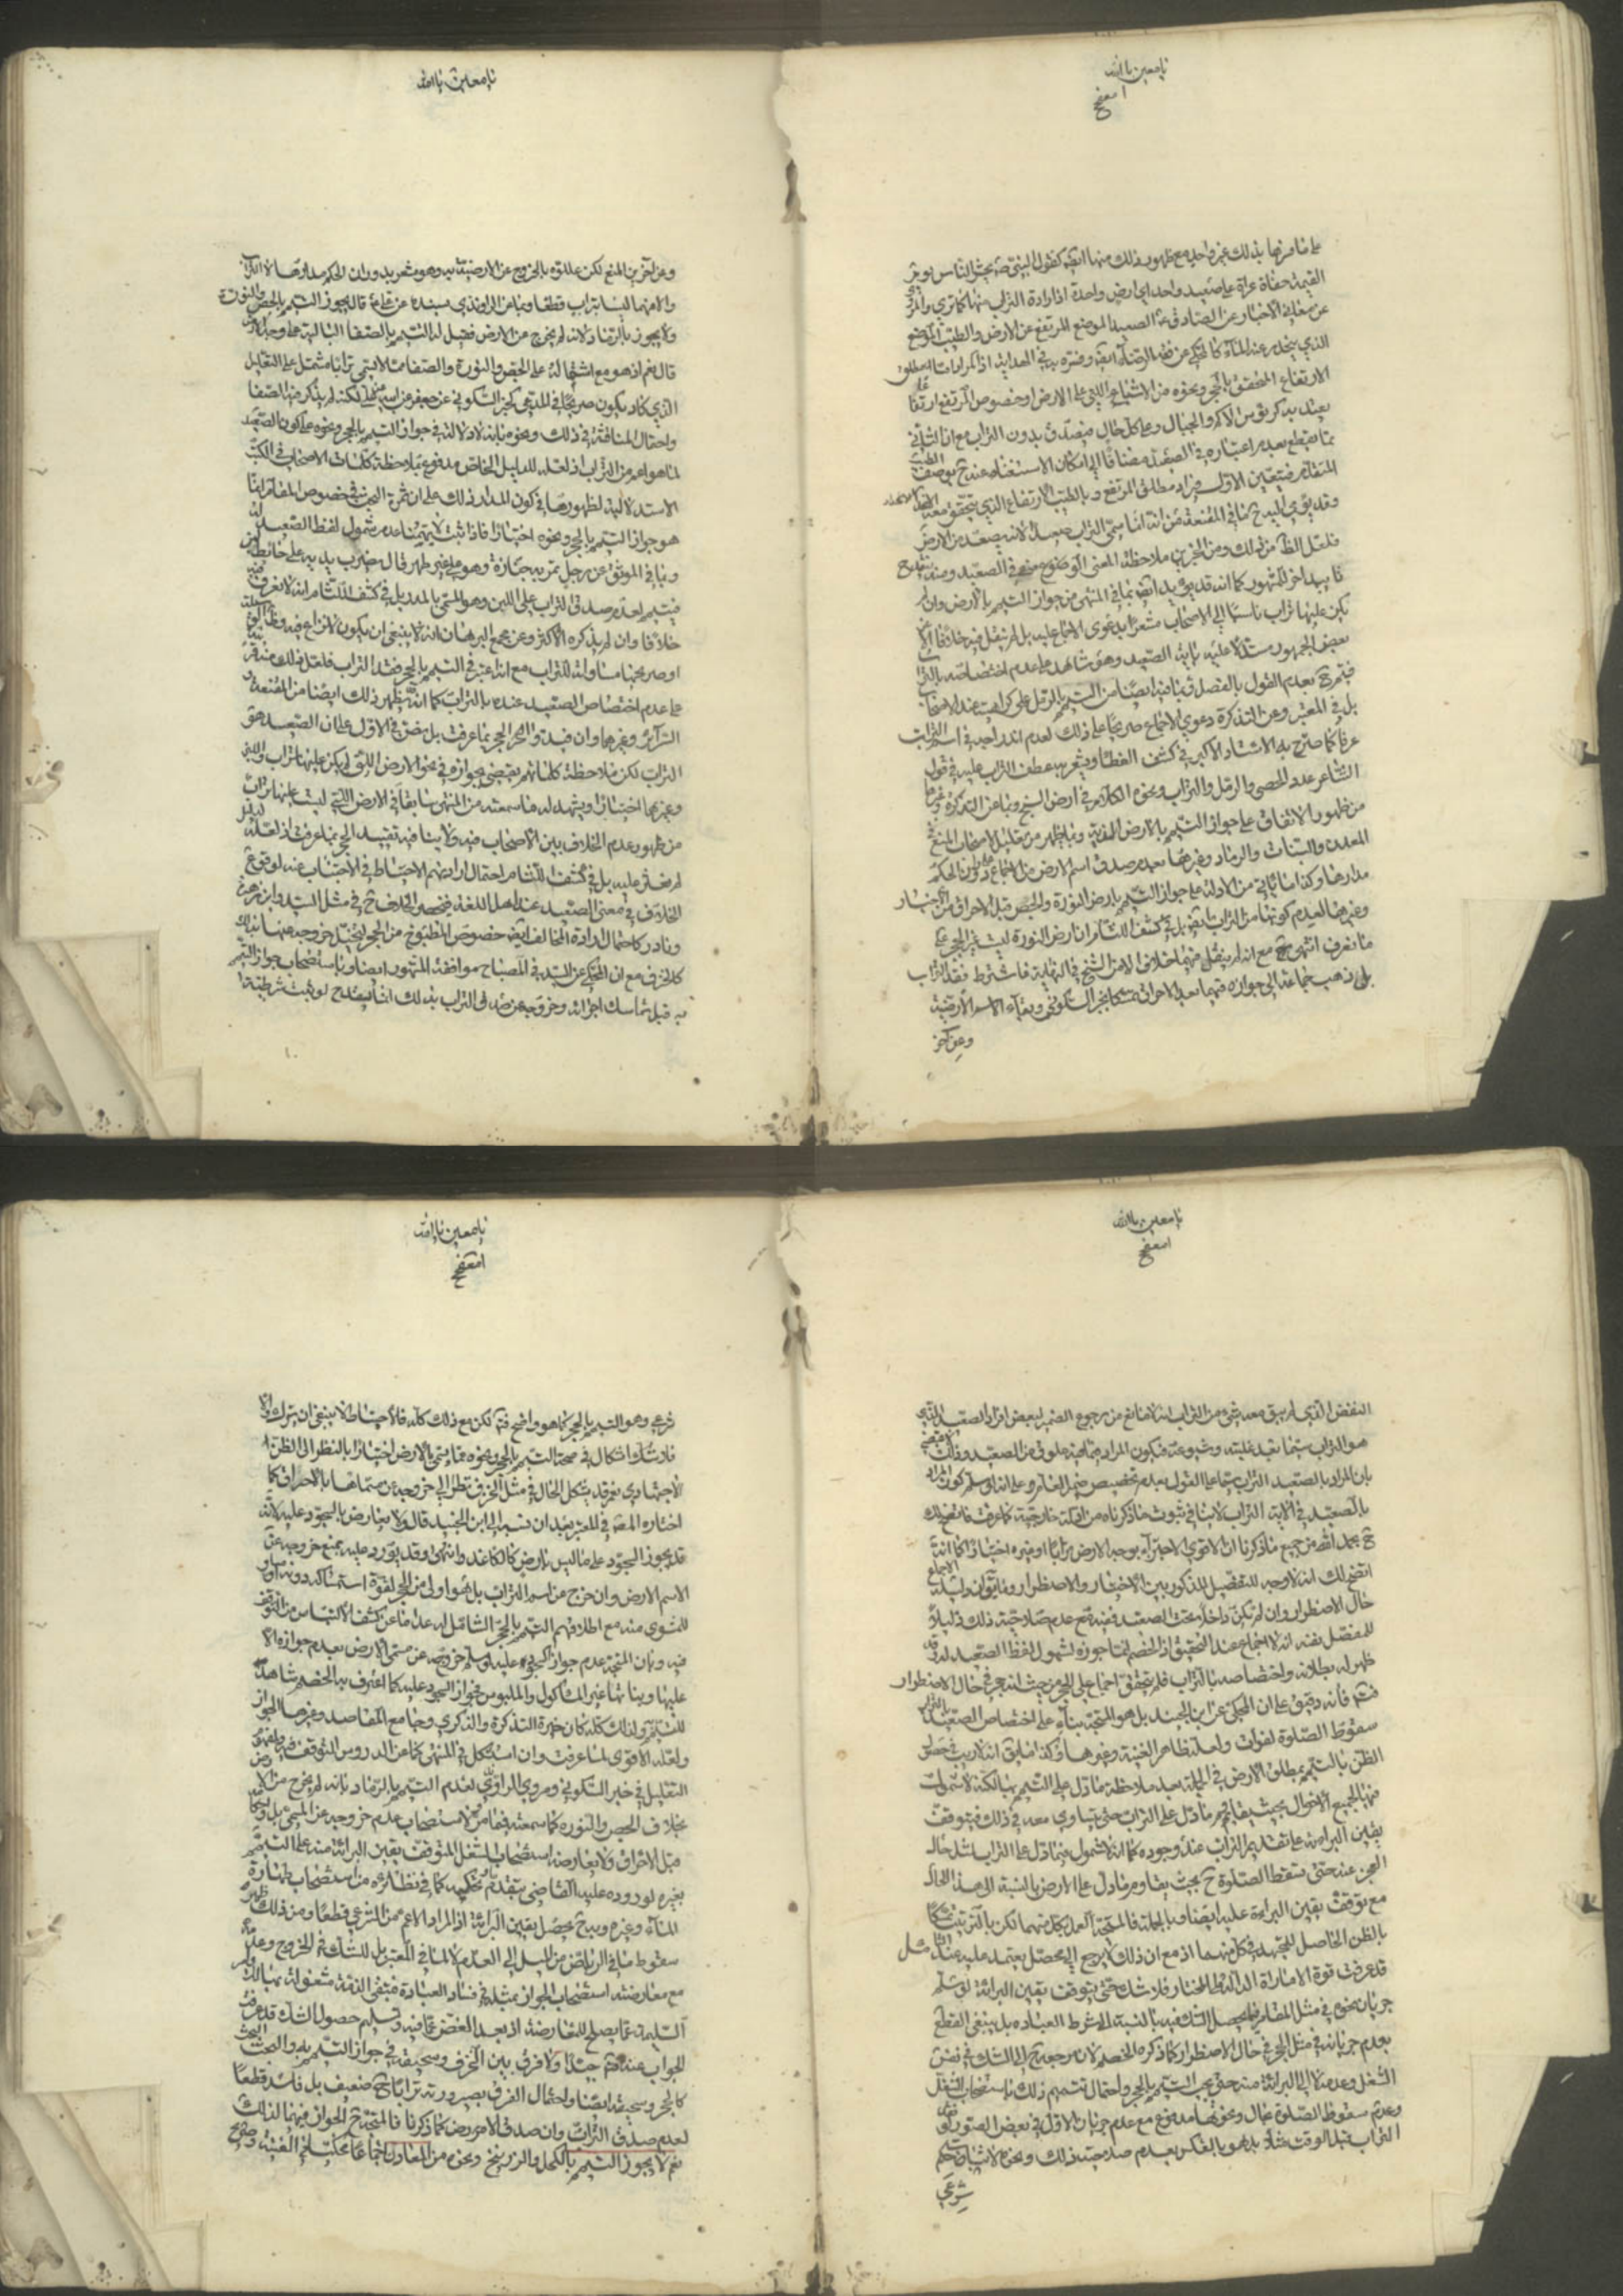 يا معين يا الله
على ما مر بها بذلك غير واحد مع ظهور ذلك منها ايضا كقول النبي ص يحشر الناس يوم
القيمة حفاة عراة على صعيد واحد اي ارض واحدة اذ ارادة التراب منها كما ترى والمر
عن معاني الاخبار عن الصادق ع الصعيد الموضع المرتفع عن الارض والطيب الموضع
الذي ينحدر عنه الماء كالمحكي عن فقه الرضا ع ايضا وفسره به في الهداية
الارتفاع المحقق بالحجر ونحوه من الاشياء التي على الارض او خصوص المرتفع ارتفاعا
يعتد به كرؤس الاكم والجبال وعلى كل حال فيصدق بدون التراب مع ان الثاني
مما يقطع بعدم اعتباره في الصعيد مضافا الى امكان الاستغناء عنه ح بوصف الطيب
المتقدم فيتعين الاول فيراد مطلق المرتفع وبالطيب الارتفاع الذي يتحقق معه
وقد يؤمي اليه ح ما في المقنعة من انه انما سمي التراب صعيدا لانه يصعد من الارض
فلعل الظاهر من ذلك ومن الخبرين ملاحظة المعنى الوصفي في الصعيد ومنه
تأييد اخر للمشهور كما انه قد يؤيد ايضا بما في المنتهى من جواز التيمم بالارض وان لم
يكن عليها تراب ناسبا الى الاصحاب مشعرا بدعوى الاجماع عليه بل لم ينقل فيه خلافا الا عن
بعض الجمهور مستدلا عليه باية الصعيد وهو شاهد على عدم اختصاصه بالتراب
فيتم ح بعدم القول بالفصل وبما فيه ايضا من التيمم بالرمل على كراهية عند الاصحاب
بل في المعتبر وعن التذكرة دعوى الاجماع صريحا على ذلك لعدم اندراجه في اسم التراب
عرفا كما صرح به الاستاد الاكبر في كشف الغطا ويشعر به عطف التراب عليه في قول
الشاعر عدد الحصى والرمل والتراب ونحوه الكلام في ارض السبخ وبما عن التذكرة وغيرها
من ظهور الاتفاق على جواز التيمم بالارض الندية وبما يظهر من تعليل الاصحاب المنع في
المعادن والنبات والرماد وغيرها بعدم صدق اسم الارض من الاجماع على كون الحكم
مدارها وكذا ما يأتي من الادلة على جواز التيمم بارض النورة والجص قبل الاحراق من الاخبار
وغيرها لعدم كونهما من التراب بل في كشف اللثام ان ارض النورة ليست غير الحجر على
ما نعرف انتهى مع انه لم ينقل فيهما خلاف الا من الشيخ في النهاية فاشترط فقد التراب
بل ذهب جماعة الى جوازه فيهما بعد الاحراق تمسكا بخبر السكوني وبقاء الاسم الارضية
وعن اخر
يا معين يا الله
وعن اخرين المنع لكن عللوه بالخروج عن الارضية وهو مشعر بدوران الحكم مدارها لا التراب
والا فهما ليسا بتراب قطعا وبما عن الراوندي بسنده عن علي ع قال يجوز التيمم بالجص والنورة
ولا يجوز بالرماد لانه لم يخرج من الارض فقيل له التيمم بالصفا البالية على وجه الارض
قال نعم اذ هو مع اشتماله على الجص والنورة والصفا مما لا يسمى ترابا مشتمل على التعليل
الذي كاد يكون صريحا في المدعى كخبر السكوني عن جعفر عن ابيه عن علي ع لكنه لم يذكر فيه الصفا
واحتمال المناقشة في ذلك ونحوه بانه لا دلالة في جواز التيمم بالحجر ونحوه على كون الصعيد
لما هو اعم من التراب اذ لعله للدليل الخاص مدفوع بملاحظة كلمات الاصحاب في الكتب
الاستدلالية لظهورها في كون المدار ذلك على ان ثمرة البحث في خصوص المقام انما
هو جواز التيمم بالحجر ونحوه اختيارا فاذا ثبت لا يهمنا عدم شمول لفظ الصعيد له
وبما في الموثق عن رجل تمر به جنازة وهو على غير طهر قال يضرب يديه على حائط لبن
فيتيمم لعدم صدق التراب على اللبن وهو المسمى بالمدر بل في كشف اللثام انه لا نعرف فيه
خلافا وان لم يذكره الاكثر وعن مجمع البرهان انه لا ينبغي ان يكون لا نزاع فيه
او صريحها مساواته للتراب مع انه اعتبر في التيمم بالحجر فقد التراب فلعل ذلك منه
على عدم اختصاص الصعيد عنده بالتراب كما انه يظهر ذلك ايضا من المقنعة
السرائر وغيرهما وان قيدوا الحجر بما عرفت بل نص في الاول على ان الصعيد هو
التراب لكن ملاحظة كلماتهم يقضي بجوازه في نحو الارض التي لم يكن عليها تراب واللبن
وغيرها اختيارا ويشهد له ما سمعته من المنتهى سابقا في الارض التي ليست عليها تراب
من ظهور عدم الخلاف بين الاصحاب فيه ولا ينافيه تقييد الحجر بما عرفت اذ لعله
لم نعثر عليه بل في كشف اللثام احتمال ارادتهم الاحتياط في الاجتناب عنه لوقوع
الخلاف في معنى الصعيد عند اهل اللغة فينحصر الخلاف ح في مثل السيد وابن زهرة
ونادر كاحتمال ارادة المخالف ايضا خصوص المطبوخ من الحجر لتخيل خروجه عنها بذلك
كالخزف مع ان المحكي عن السيد في المصباح موافقة المشهور ايضا وباستصحاب جواز التيمم
به قبل تماسك اجزائه وخروجه عن صدق التراب بذلك
يا معين يا الله
النفض الذي لم يبق معه شيء من التراب انه لا مانع من رجوع الضمير لبعض افراد الصعيد الذي
هو التراب سيما بعد غلبته وشيوعه فيكون المراد
بان المراد بالصعيد التراب
بالصعيد في الاية التراب لا ينافي ثبوت ما ذكرناه من ادلة خارجية كما عرفت فاتضح لك
ح بحمد الله من جميع ما ذكرنا ان الاقوى الاجتزاء بوجه الارض ترابا او غيره اختيارا كما انه
اتضح لك انه لا وجه للتفصيل المذكور بين الاختيار والاضطرار
حال الاضطرار وان لم تكن داخلة تحت الصعيد ففيه مع عدم صلاحية ذلك دليلا
للمفصل نفسه انه لا اجماع عند التحقيق اذ الخصم انما جوزه لشمول لفظ الصعيد له
ظهر له بطلانه واختصاصه بالتراب فلم يتحقق اجماع على الحجر من حيث انه حجر في حال الاضطرار
على ان المحكي عن ابن الجنيد بل هو المتجه بناء على اختصاص الصعيد بالتراب
سقوط الصلوة لفوات ولعله ظاهر الغنية وغيرها
الظن بالتيمم بمطلق الارض في الجملة بعد ملاحظة ما دل على التيمم بها لكنه لا شمول
فيها لجميع الاحوال بحيث يقاوم ما دل على التراب حتى يتساوى معه في ذلك فيتوقف
يقين البراءة على تقديم التراب عند وجوده كما انه لا شمول فيما دل على التراب لمثل حال
العجز عنه حتى تسقط الصلوة ح بحيث يقاوم ما دل على الارض بالنسبة الى هذا الحال
مع توقف يقين البراءة عليه ايضا وبالجملة فالمتجه العمل بكل منهما لكن بالترتيب
بالظن الحاصل للمجتهد في كل منهما اذ مع ان ذلك لا يرجع الى محصل يعتمد عليه
قد عرفت قوة الامارة الدالة على المختار فلا شك حتى يتوقف يقين البراءة
جريان نحوه في مثل المقام مما يحصل الشك فيه بالنسبة الى شرط العبادة بل ينبغي القطع
بعدم جريانه في مثل الحجر في حال الاضطرار كما ذكره الخصم لان مرجعه ح الى الشك في نفس
الشغل وعدمه لا الى البراءة منه حتى يجب التيمم بالحجر واحتمال تتميم ذلك باستصحاب الشغل
وعدم سقوط الصلوة بحال ونحوهما مدفوع مع عدم جريان الاول في بعض الصور
شرعي
يا معين يا الله
شرعي وهو التيمم بالحجر كما هو واضح لكن مع ذلك كله فالاحتياط لا ينبغي ان يترك
فلا شك ولا اشكال في صحة التيمم بالحجر ونحوه مما يسمى بالارض اختيارا بالنظر الى الظن
الاجتهادي نعم قد يشكل الحال في مثل الخزف نظرا الى خروجه عن مسماها بالاحراق كما
اختاره المصنف في المعتبر بعد ان نسبه الى ابن الجنيد قال ولا يعارض بالسجود عليه لانه
قد يجوز السجود على ما ليس بارض كالكاغد وانتهى وقد يورد عليه بمنع خروجه عن
الاسم الارض وان خرج عن اسم التراب بل هو اولى من الحجر لقوة استمساكه دونه
للمشوي منه مع اطلاقهم التيمم بالحجر الشامل له عدا ما عن كشف الالتباس من التوقف
فيه وبان المتجه عدم جواز السجود عليه لو سلم خروجه عن مسمى الارض بعدم جوازه الا
عليها ونباتها غير المأكول والملبوس فجواز السجود عليه كما اعترف به الخصم شاهد
للتيمم ولذلك كله كان خيرة التذكرة والذكرى وجامع المقاصد وغيرها الجواز
ولعله الاقوى لما عرفت وان استشكل في المنتهى كما عن الدروس التوقف فيه
التعليل في خبر السكوني ومروي الراوندي لعدم التيمم بالرماد بانه لم يخرج من الارض
بخلاف الجص والنورة كما سمعته فيهما لاستصحاب عدم خروجه عن المسمى
قبل الاحراق ولا يعارضه استصحاب الشغل المتوقف يقين البراءة منه على التيمم
بغيره لوروده عليه القاضي بتقدم تحكيمه كما في نظائره من استصحاب طهارة
الماء وغيره وبه ح يحصل يقين البراءة اذ المراد الاعم من الشرعي قطعا ومن ذلك ظهر
سقوط ما في الرياض من الميل الى العدم لا لما في المعتبر بل للشك في الخروج وعدمه
مع معارضة استصحاب الجواز بمثله في فساد العبادة فتبقى الذمة مشغولة بها
السليمة عما يصلح للمعارضة اذ بعد الغض عما فيه وتسليم حصول الشك قد عرفت
الجواب عنه جيدا ولا فرق بين الخزف وسحيقه في جواز التيمم به والبحث البحث
كالحجر وسحيقه ايضا واحتمال الفرق بصيرورته ترابا ح ضعيف بل فاسد قطعا
لعدم صدق التراب وان صدق الارض كما ذكرنا فالمتجه ح الجواز فيهما لذلك
نعم لا يجوز التيمم بالكحل والزرنيخ ونحوه من المعادن اجماعا